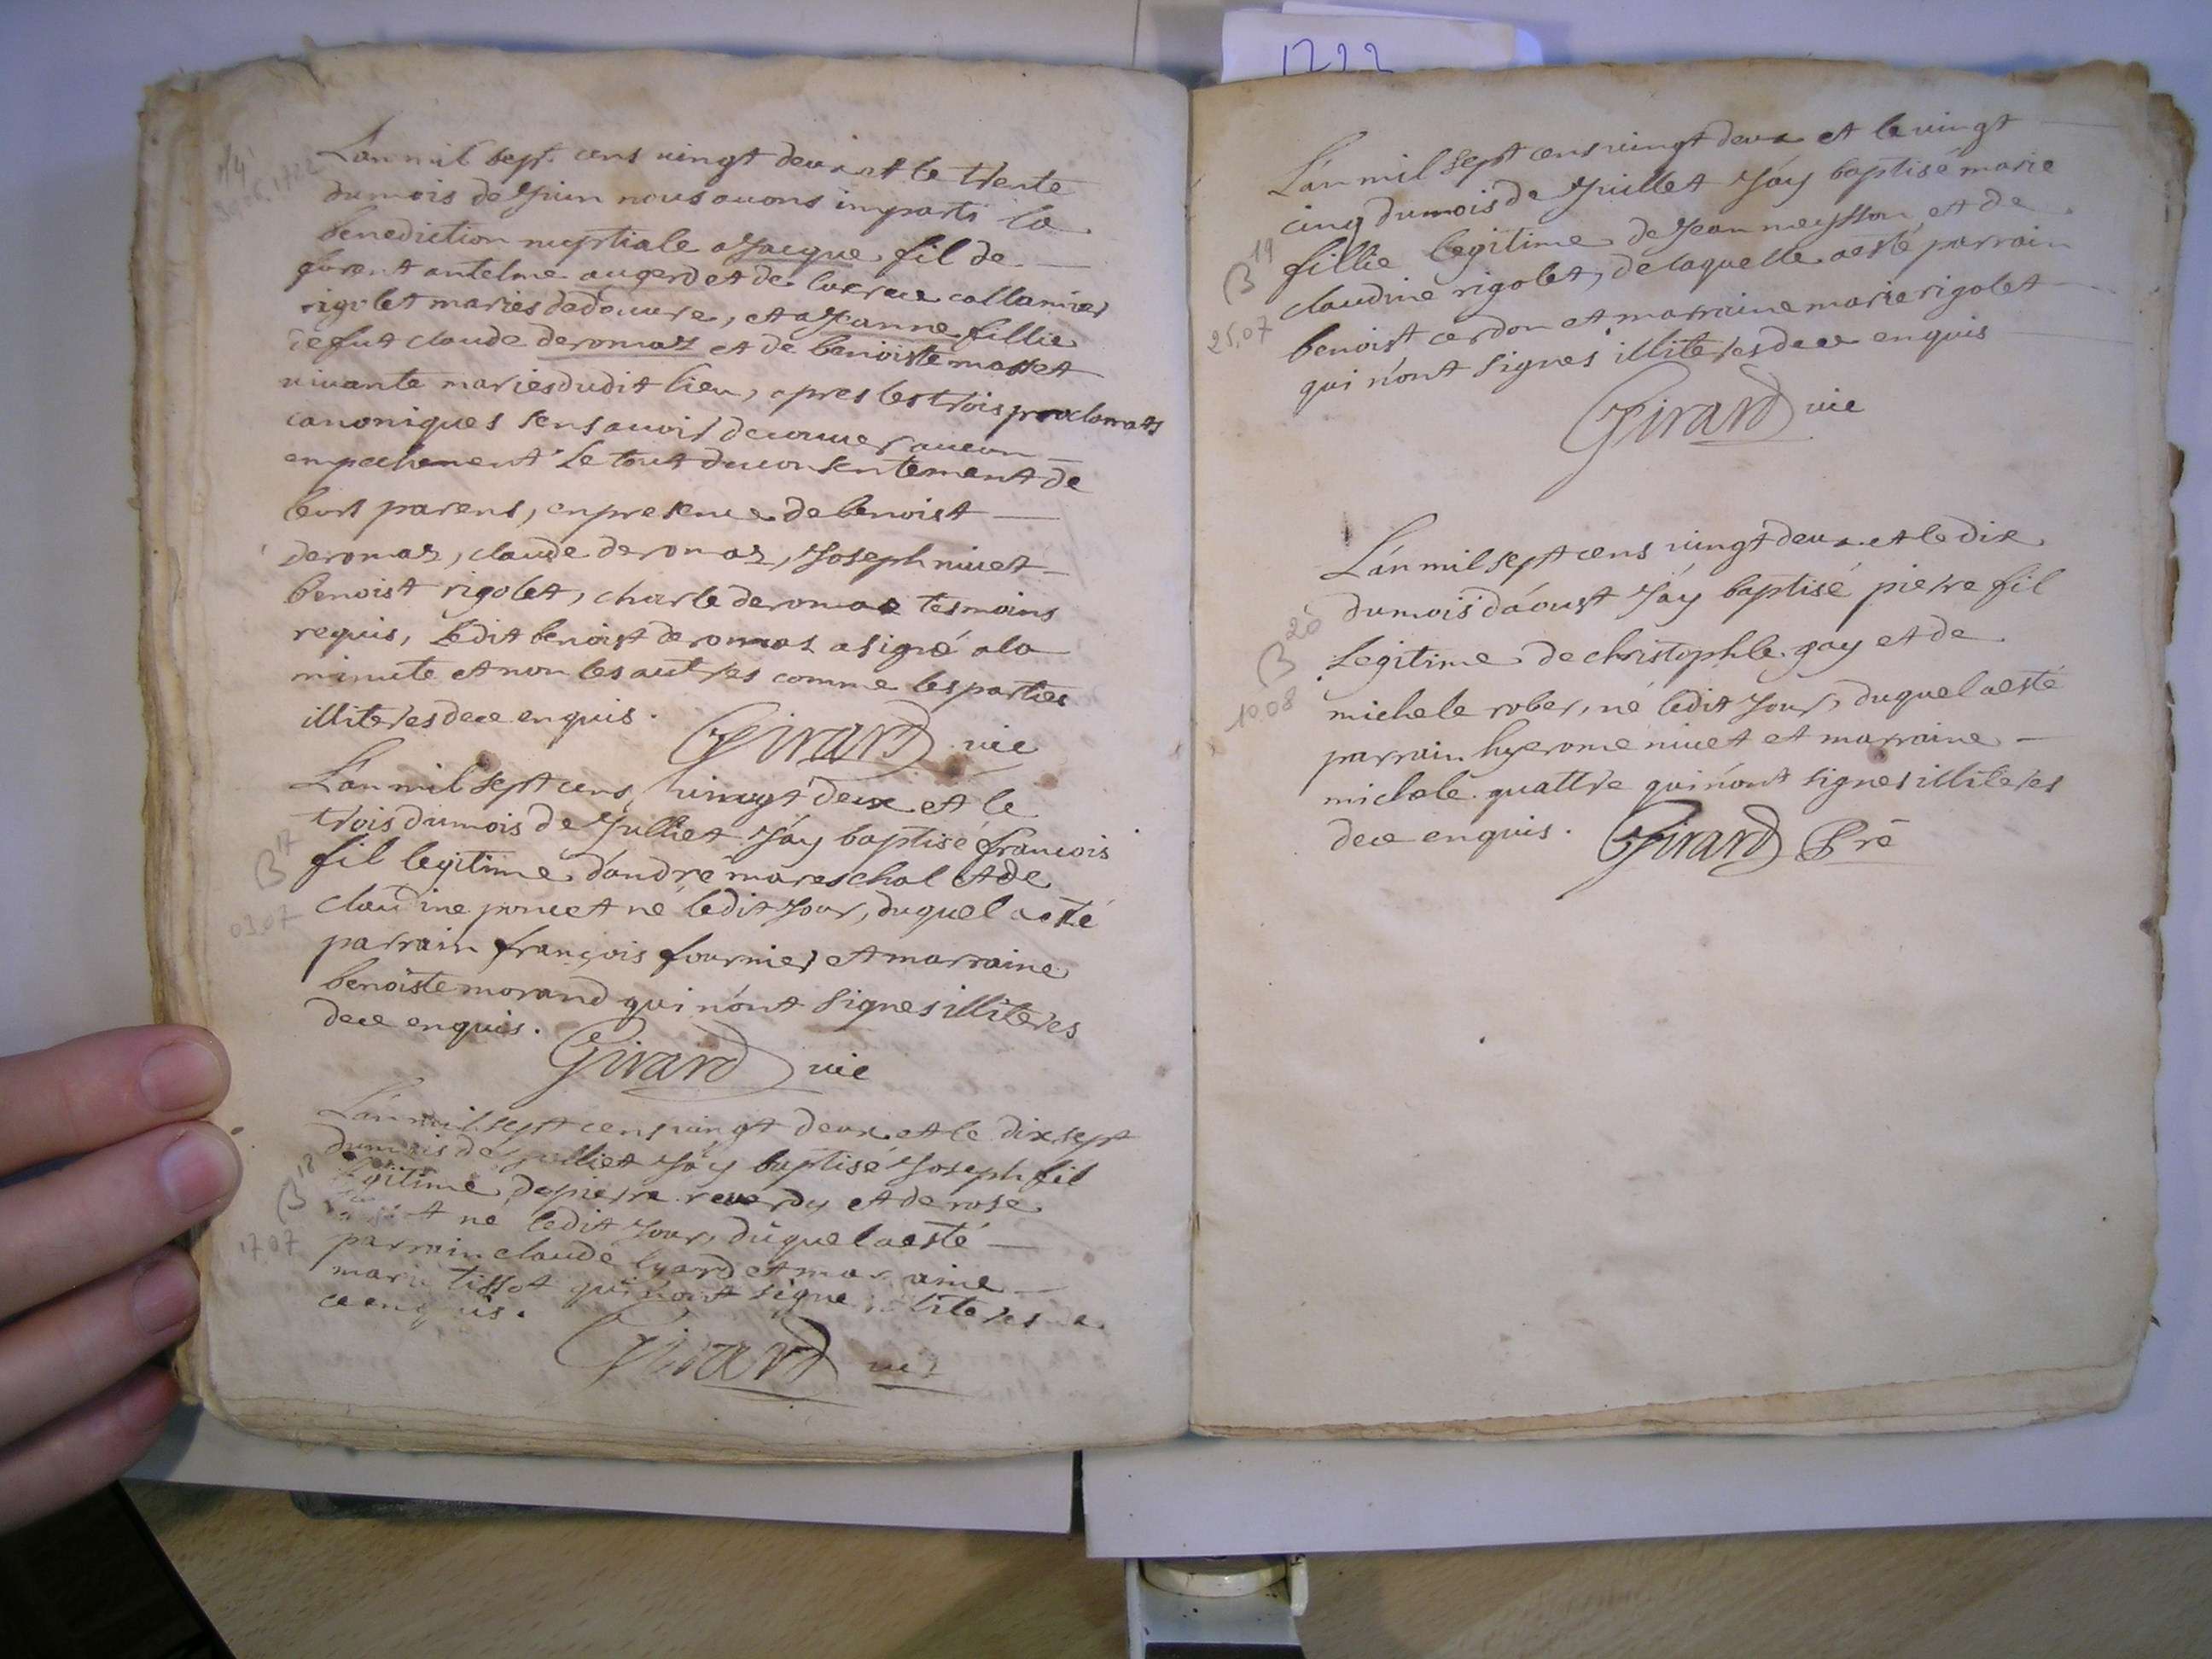 1722
L'an mil sept cens vingt deux et le trente
du mois de Juin nous avons imparti la
benediction nuptiale a Jacque fil de
furent antelme augerd et de
rigolet maries dedouvre, et a Jeanne fillie
de fut claude deromas et de benoiste masset
vivante maries dudit lieu, apres les trois proclomats
canoniques sens avoir decouver aucun
empechement le tout du consentement de
leurs parens, en presence de benoist
deromas, claude deromas, Joseph nivet
benoist rigolet, charle deromas tesmoins
requis, Ledit benoist deromas a signé a la
minute et non les autres comme les parties
illiteres de ce enquis.
Girard vic
L'an mil sept cens vingt deux et le
trois du mois de Julliet J'ay baptisé francois
fil legitime d'andré mareschal et de
claudine poncet né ledit Jour, duquel a esté
parrain françois fournier et marraine
benoiste morand qui n'ont signes illiteres
de ce enquis.
Girard vic
B 17
03.07
L'an mil sept cens vingt deux et le dix sept
du mois de Julliet J'ay baptisé Joseph fil
legitime de pierre reverdy et de rose
né ledit Jour, duquel a esté
parrain claude lyard et marraine
marie tissot qui n'ont signe illiteres de
ce enquis.
Girard vic
B 18
17.07
L'an mil sept cens vingt deux et le vingt
cinq du mois de Juillet J'ay baptisé marie
fillie legitime de Jean meysson et de
claudine rigolet, de laquelle a esté parrain
benoist cerdon et marraine marie rigolet
qui n'ont signes illiteres de ce enquis
Girard vic
B 19
25.07
L'an mil sept cens vingt deux et le dix
du mois d'aoust J'ay baptisé pierre fil
Legitime de christophle gay et de
michele rober, né ledit Jour, duquel a esté
parrain hyerome nivet et marraine
michele quattre qui n'ont signes illiteres
de ce enquis. Girard Pre
B 20
10.08